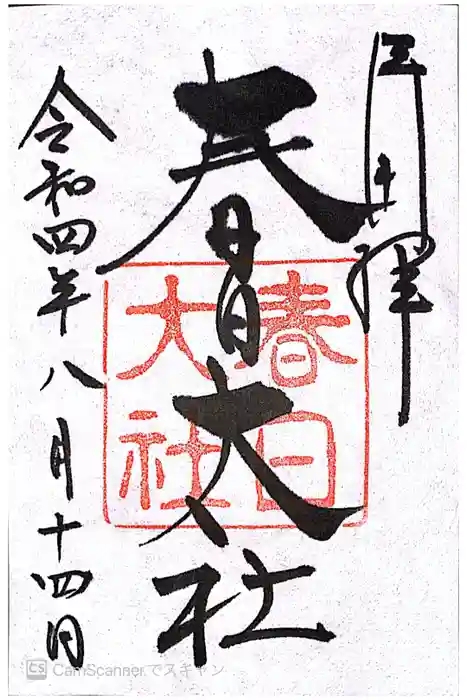 奉拝
春日大社
春日
大社
令和四年八月十四日
CS CamScannerでスキャン